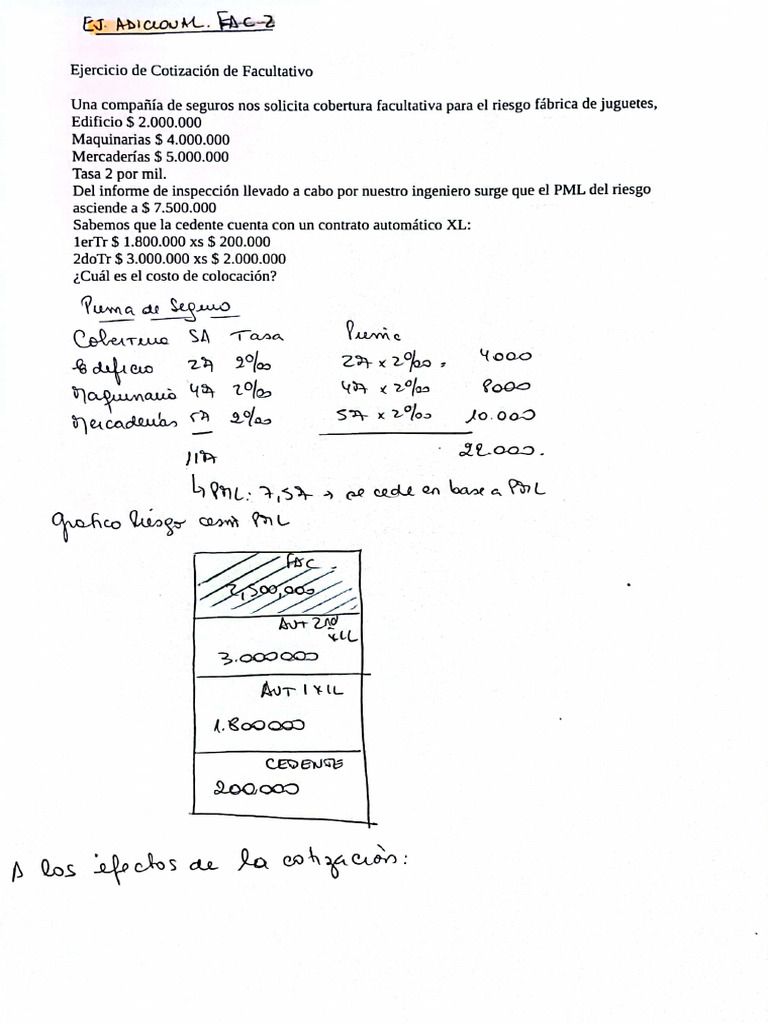 EJ. ADICIONAL. FAC-2
Ejercicio de Cotización de Facultativo
Una compañía de seguros nos solicita cobertura facultativa para el riesgo fábrica de juguetes,
Edificio $ 2.000.000
Maquinarias $ 4.000.000
Mercaderías $ 5.000.000
Tasa 2 por mil.
Del informe de inspección llevado a cabo por nuestro ingeniero surge que el PML del riesgo
asciende a $ 7.500.000
Sabemos que la cedente cuenta con un contrato automático XL:
1erTr $ 1.800.000 xs $ 200.000
2doTr $ 3.000.000 xs $ 2.000.000
¿Cuál es el costo de colocación?
Prima de Seguro
Cobertura SA Tasa Prima
Edificio 2M 2‰ 2M x 2‰ = 4000
Maquinaria 4M 2‰ 4M x 2‰ 8000
Mercaderías 5M 2‰ 5M x 2‰ 10.000
11M 22.000.
↳ PML: 7,5M → se cede en base a PML
Grafico Riesgo PML
FAC.
2,500,000
AUT 2nd
XL
3.000000
AUT 1 XL
1.800000
CEDENTE
200.000
A los efectos de la cotización: